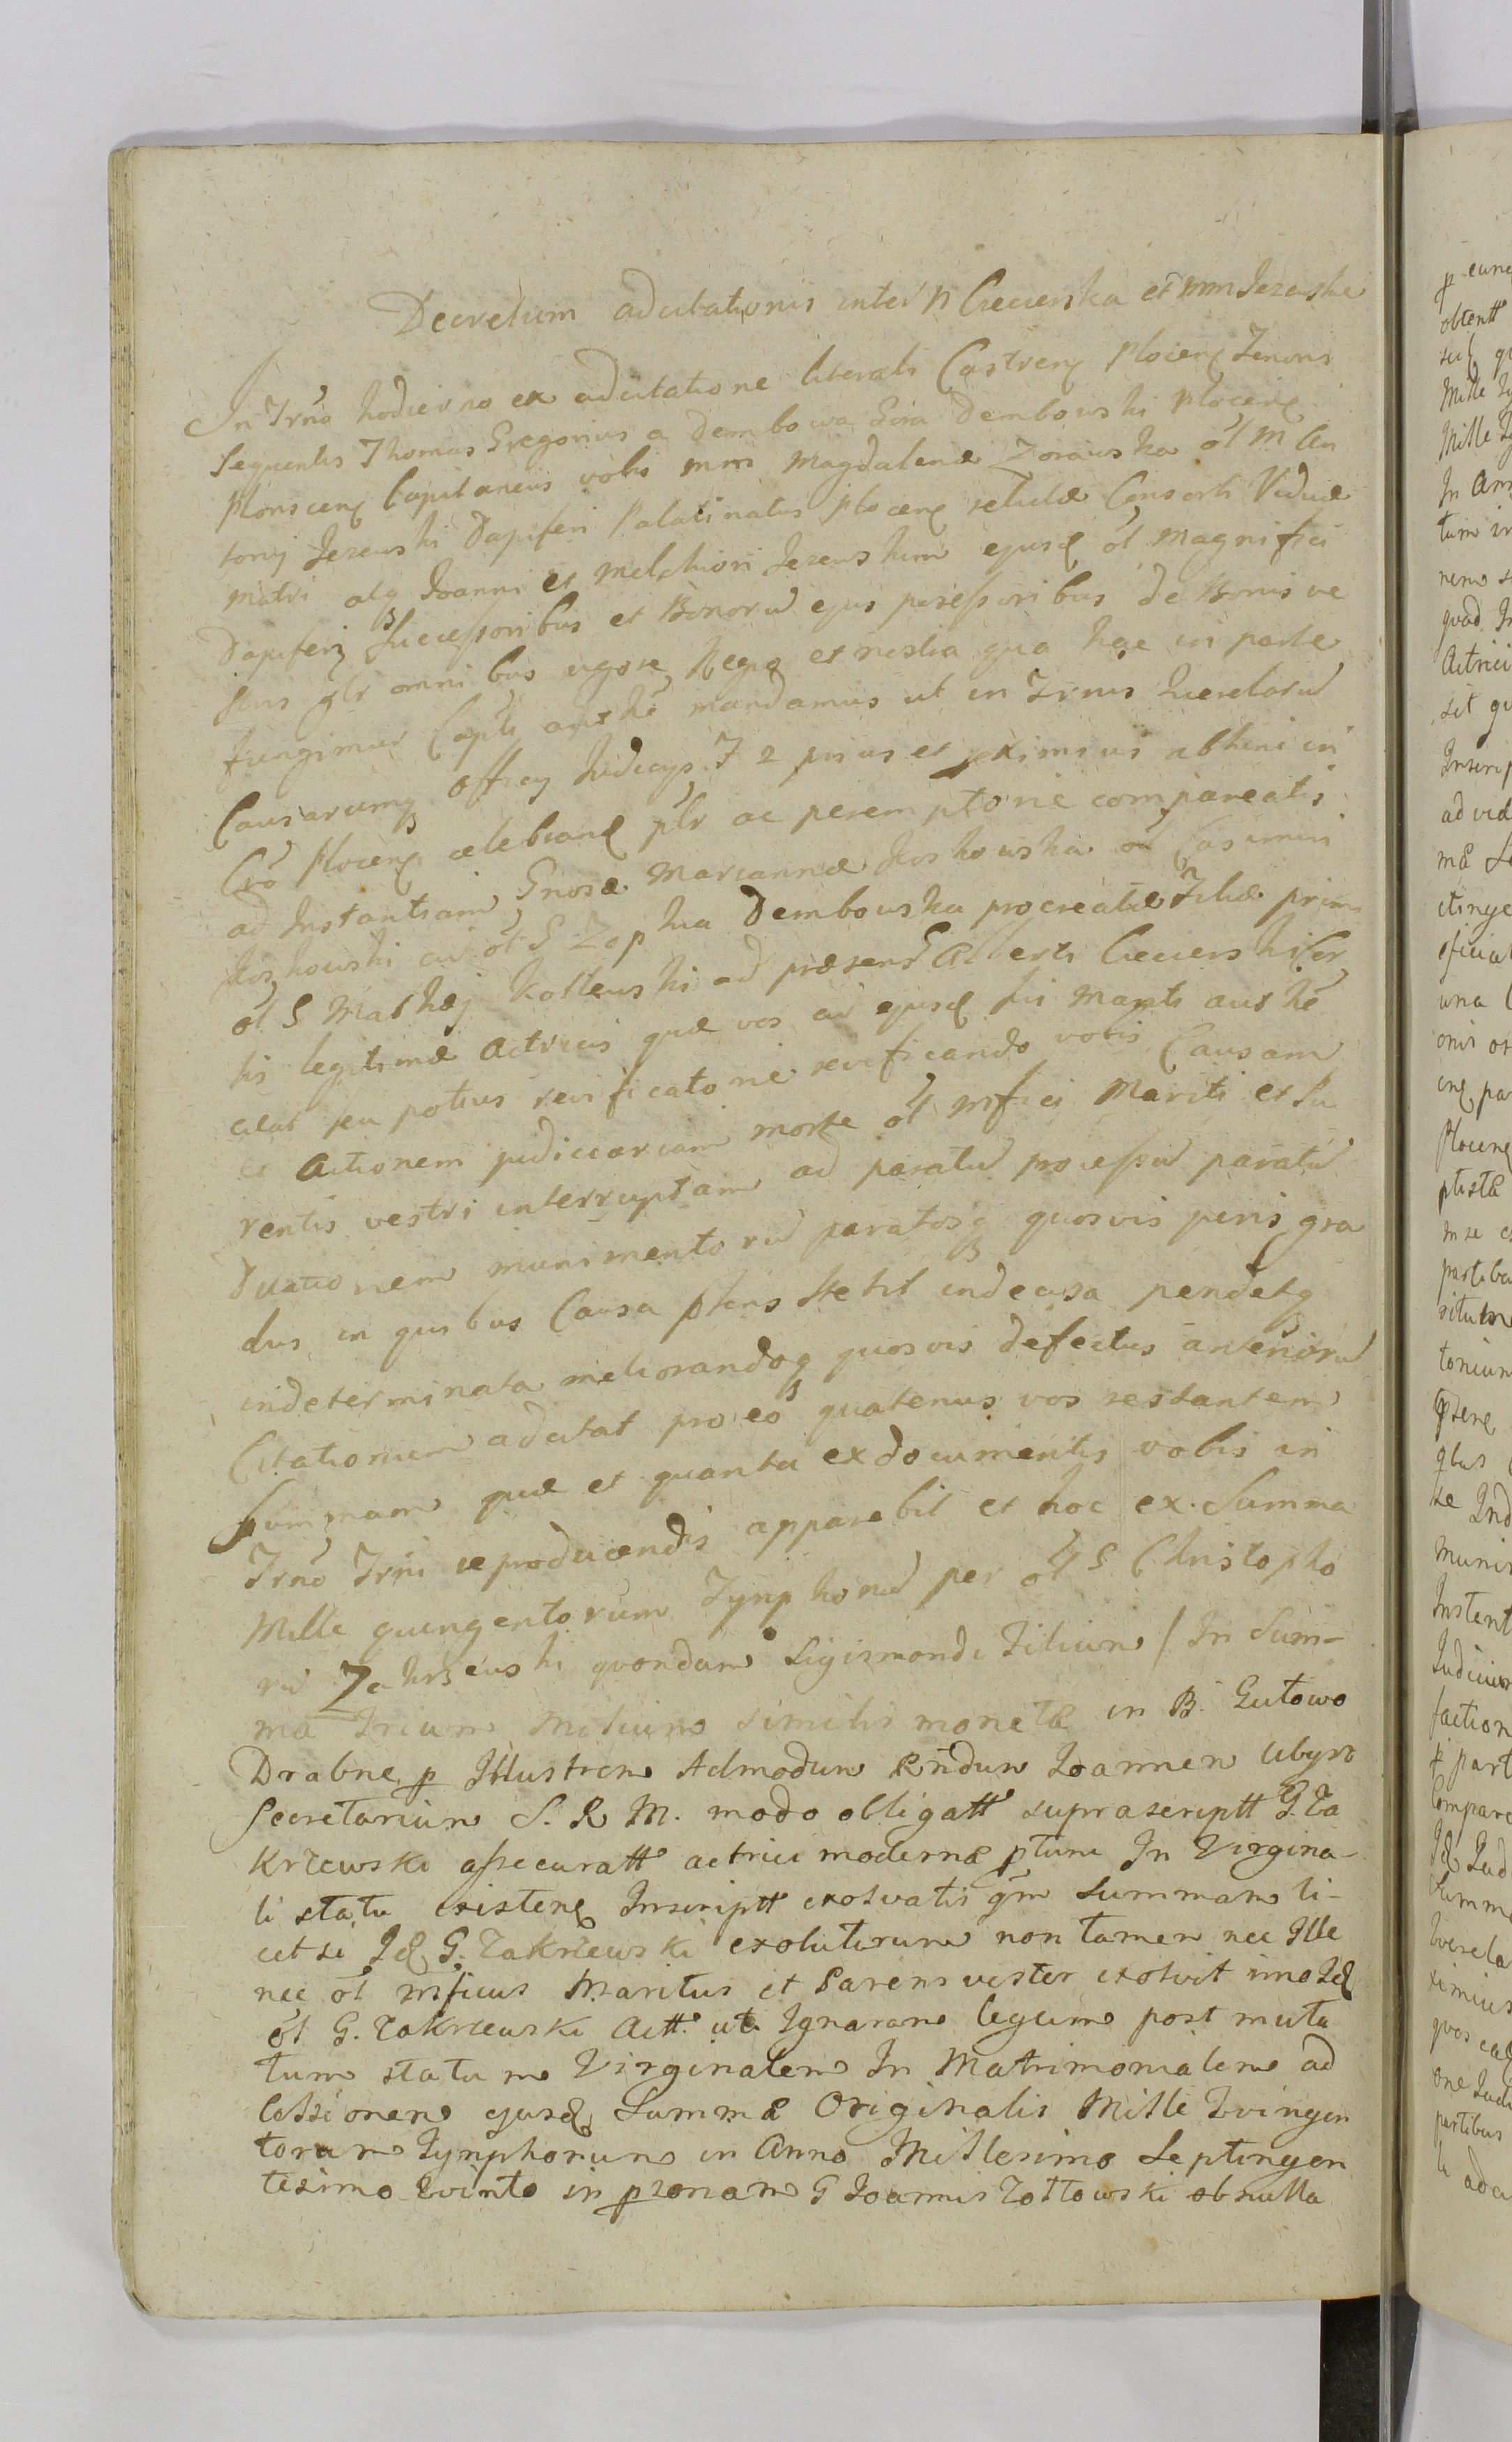 Decretum adcitationis inter N Ciecierska et mm Jezewskie
In Trno hodierno ex adcitatione literali Castren Plocen Tenoris
Sequentis Thomas Gregorius a Dembowa Gora Dembowski Plocen
Plonscen Capitaneus vobis mm Magdalenæ Zorawska ol M An
tonij Jezewski Dapiferi Palatinatus Plocen relictæ Consorti Viduæ
matri atq Joanni et Melchiori Jezewskim ejusd ol Magnifici
Dapiferi Successoribus et Bonorū ejus possessoribus de Bonis ve
stris glr omnibus vigore Regia et nostra qua hac in parte
fungimur Capli authē mandamus ut in Trnis Querelarū
Causarumq Officij Judicijs F 2 prius et pximius abhinc in
Cro Plocen celebrand plr ac peremptorie compareatis
ad Instantiam Gnosæ Mariannæ Koskowska ol Casimiri
Koskowski cū ol G Zophia Dembowska procreatæ Filiæ primi
ol G Mathæj Kollewski ad præsens G Alberti Ciecierski Cō
tis legitimæ Actricis quæ vos cū ejusd sui Mariti authē
citat seu potius reificatorie reificando vobis Causam
et Actionem judiciariam morte ol mfici Mariti et Pa
rentis vestri interruptam ad paratū processū paratū
ductionem munimentorū paratosq quosvis juris gra
dus in quibus Causa phens stetit indecisa pendetq
indeterminata meliorandoq quosvis defectus anteriorū
Citationum adcitat pro eo quatenus vos restantem
Summam quæ et quanta ex documentis vobis in
Trno Trni reproducendis apparebit et hoc ex Summa
Mille quingentorum Tynphonū per ol G Christopho
rū Zakrzewski quondam Sigismondi Filium / In Sum-
ma Trium Millium similis monetæ in B. Gutowo
Drabne p Illustrem Admodum Rndum Joannem Ubysz
Secretarium S. R M. modo obligatt suprascriptt G. Za
krzewski assecuratt actrici modernæ ptunc In Virgina-
li statu existen Inscriptt exolvatis qm Summam li-
cet se Id G. Zakrzewski exoluturum non tamen nec Ille
nec ol mficus Maritus et Parens vester exolvit imo Id
ol G. Zakrzewski Actt. uti Ignaram legum post muta
tum statum Virginalem In Matrimonialem ad
Cessionem ejusd Summæ Originalis Mille Quingen
torum Tynphonum in Anno Millesimo Septingen
tesimo Quinto in psonam G Joannis Zottowski ob nulla